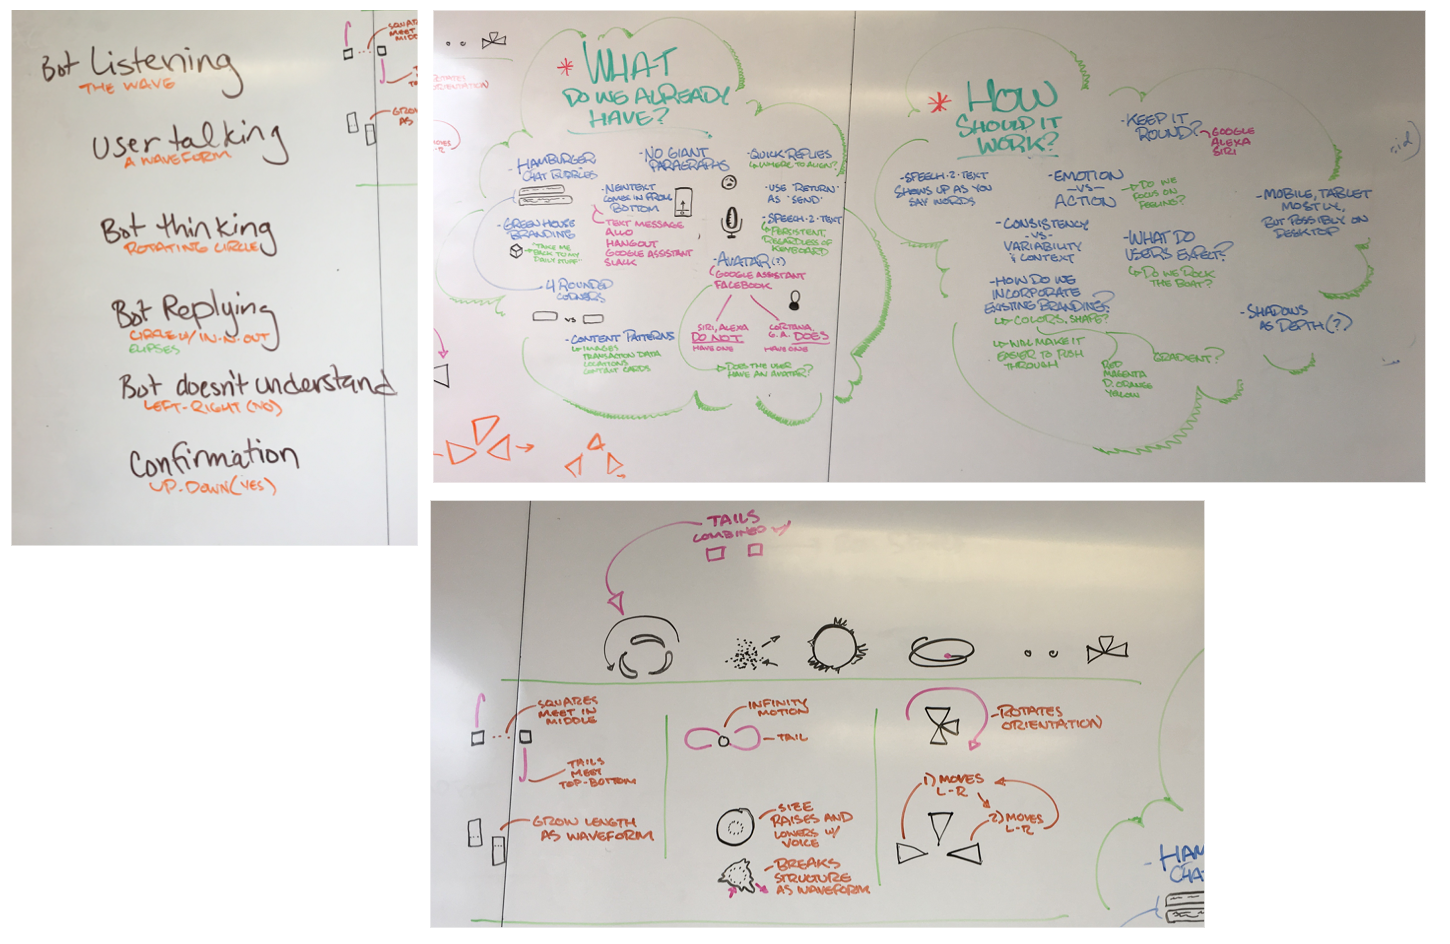 Bot Listening
THE WAVE
User talking
A WAVEFORM
Bot thinking
ROTATING CIRCLE
Bot Replying
CIRCLE W/ IN-N-OUT
ELIPSES
Bot doesn't understand
LEFT-RIGHT (NO)
Confirmation
UP-DOWN (YES)
SQUARES
MEET IN
MIDDLE
GROW
AS
ROTATES
ORIENTATION
MOVES
L-R
* WHAT
DO WE ALREADY
HAVE?
- HAMBURGER
CHAT BUBBLES
- GREEN HOUSE
BRANDING
"TAKE ME
BACK TO MY
DAILY STUFF"
- 4 ROUNDED
CORNERS
VS
- CONTENT PATTERNS
IMAGES
TRANSACTION DATA
LOCATIONS
CONTACT CARDS
- NO GIANT
PARAGRAPHS
- NEW TEXT
COMES IN FROM
BOTTOM
TEXT MESSAGE
ALLO
HANGOUT
GOOGLE ASSISTANT
SLACK
- QUICK REPLIES
WHERE TO ALIGN?
- USE 'RETURN'
AS 'SEND'
- SPEECH-2-TEXT
PERSISTENT,
REGARDLESS OF
KEYBOARD
- AVATAR (?)
GOOGLE ASSISTANT
FACEBOOK
SIRI, ALEXA
DO NOT
HAVE ONE
CORTANA,
G.A. DOES
HAVE ONE
DOES THE USER
HAVE AN AVATAR?
* HOW
SHOULD IT
WORK?
- SPEECH-2-TEXT
SHOWS UP AS YOU
SAY WORDS
- KEEP IT
ROUND?
GOOGLE
ALEXA
SIRI
- EMOTION
-VS-
ACTION
DO WE
FOCUS ON
FEELING?
- CONSISTENCY
-VS-
VARIABILITY
& CONTEXT
- WHAT DO
USERS EXPECT?
DO WE ROCK
THE BOAT?
- HOW DO WE
INCORPORATE
EXISTING BRANDING?
COLORS, SHAPE?
WILL MAKE IT
EASIER TO PUSH
THROUGH
RED
MAGENTA
D. ORANGE
YELLOW
GRADIENT?
- MOBILE, TABLET
MOSTLY,
BUT POSSIBLY ON
DESKTOP
- SHADOWS
AS DEPTH (?)
TAILS
COMBINED
SQUARES
MEET IN
MIDDLE
TAILS
MEET
TOP-BOTTOM
GROW LENGTH
AS WAVEFORM
INFINITY
MOTION
TAIL
SIZE
RAISES AND
LOWERS W/
VOICE
BREAKS
STRUCTURE
AS WAVEFORM
ROTATES
ORIENTATION
1) MOVES
L-R
2) MOVES
L-R
- HAM
CHA